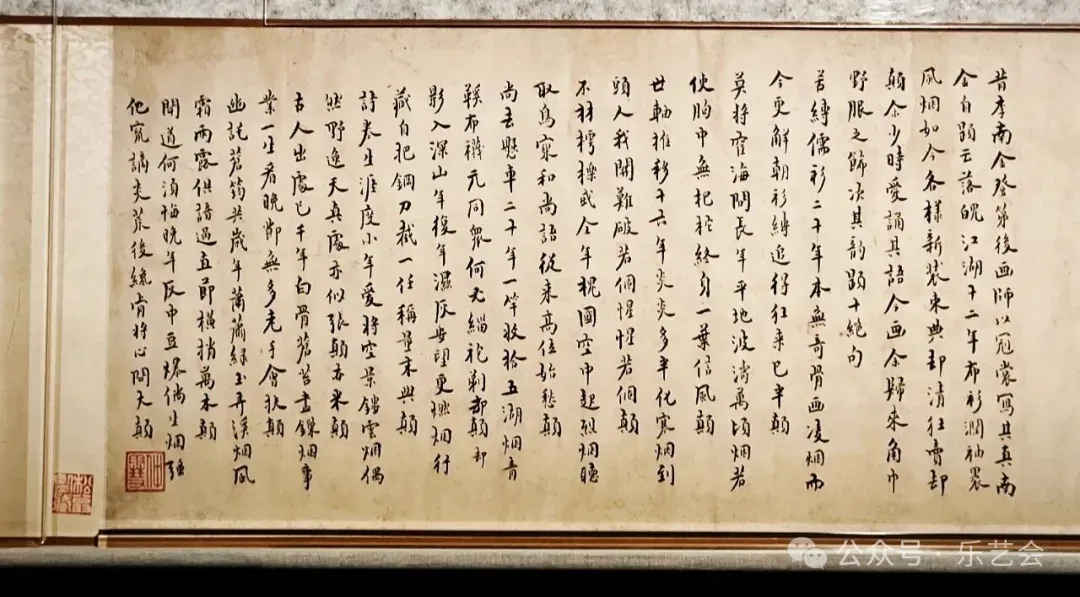 昔李南金登第後画師以冠裳寫其真南
金自題云落魄江湖十二年布衫濶袖裹
風烟如今各樣新裝束典却清狂賣却
顛余少時愛誦其語今画余歸來角巾
野服之餙次其韵題十絶句
苦縛儒衫二十年本無奇骨画凌烟而
今更解朝衫縛追得狂来已半顛
莫將宦海問長年平地波濤萬頃烟若
使胸中無把柁終身一葉信風顛
世軸推移十六年炎炎多半化寒烟到
頭人我關難破若個惺惺若個顛
不材樗櫟或全年柷圉空中起烈烟聽
取鳥窠和尚語從来高位始愁顛
尚去懸車二十年一竿收拾五湖烟青
鞋布襪元同衆何必緇袍剃却顛却
影入深山年復年濕灰安望更燃烟行
藏自犯鋼刀截一任稱量朱與顛
詩卷生涯度小年愛將空景鏤雲烟偶
然野逸天真處亦似張顛亦米顛
古人出處已千年白骨蒼苔烟事
業一生看晚節無多老手會扶顛
幽說蒼筠共歲年蕭蕭緑玉弄溪烟風
霜雨露俱諳過直節橫捎萬木顛
聞道何須悔晚年灰中豆爆倘生烟強
他炎荒後肯將心問大顛
公众号·乐艺会